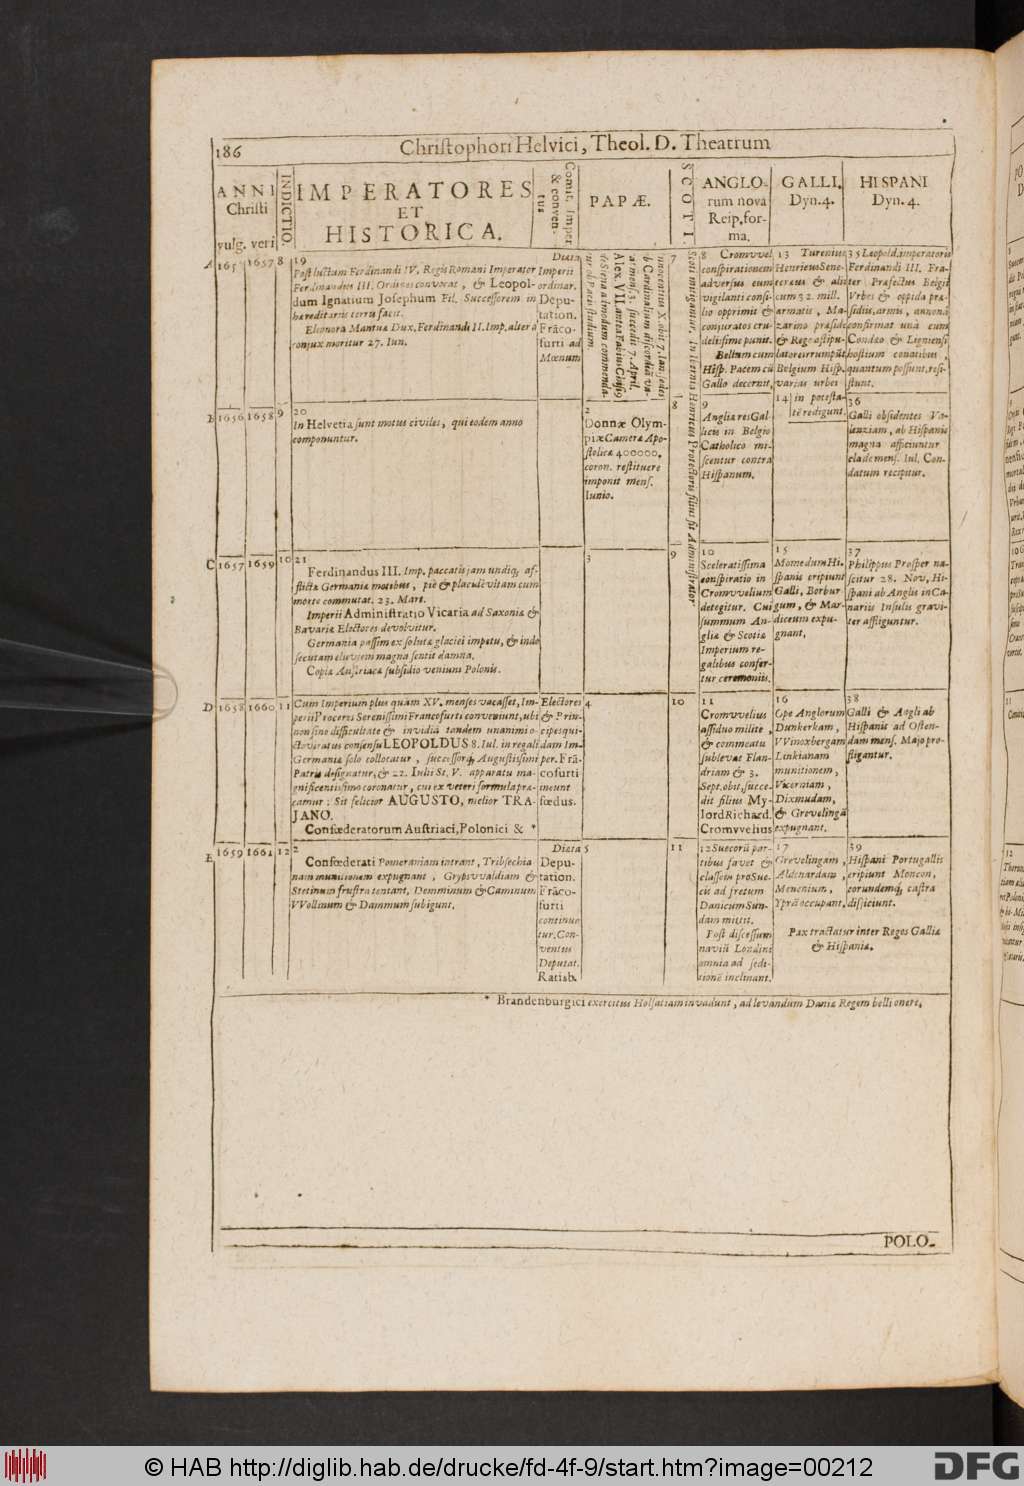 186
Christophori Helvici, Theol. D. Theatrum
ANNI
Christi
vulg. veri
INDICTIO.
IMPERATORES
ET
HISTORICA.
Comit. Imper.
& conven-
tus
PAPÆ.
SCOTI.
ANGLO-
rum nova
Reip. for-
ma.
GALLI.
Dyn. 4.
HISPANI
Dyn. 4.
A 165 1657 8
19
Post luctum Ferdinandi IV. Regis Romani Imperator
Ferdinandus III. Ordines convocat, & Leopol-
dum Ignatium Josephum Fil. Successorem in
hæreditariis terris facit.
Eleonora Mantuæ Dux, Ferdinandi II. Imp. altera
conjux moritur 27. Iun.
Dieta
Imperii
ordinar.
Depu-
tation.
Frãco-
furti ad
Mœnum
Innocentius X. obit 7. Ian. sedes
Cardinalium discordiã va-
at mens. 3. succedit 7. April.
Alex. VII. antea Fabius Chisi9
7
Scoti mitigantur. In Ibernia Henricus Protectoris filius fit Administrator
8 Cromvvel
conspirationem
adversus eum
vigilanti consi-
lio opprimit &
conjuratos cru-
delissime punit.
Bellum cum
Hisp. Pacem cũ
Gallo decernit,
13 Turenius
Henricus Sene-
ctereus & alii
cum 32. mill.
armatis, Ma-
zarino præside
& Rege astipu-
latore irrumpũt
Belgium Hisp.
varias urbes
14 in potesta-
tẽ redigunt.
35 Leopold, imperatoris
Ferdinandi III. Fra-
ter Præfectus Belgii
Vrbes & oppida præ-
sidiis, armis, annonâ
confirmat unà cum
Condæo & Ligniensi
hostium conatibus,
quantum possunt, resi-
stunt.
B 1656 1658 9
20
In Helvetia sunt motus civiles, qui eodem anno
componuntur.
2
Donnæ Olym-
piæ Cameræ Apo-
stolicæ 400000.
coron. restituere
imponit mens.
Iunio.
8
9
Angliæ res Gal
licis in Belgio
Catholico mi-
scentur contra
Hispanum.
36
Galli obsidentes Va-
lenziam, ab Hispanis
magna afficiuntur
clade mens. Iul. Con-
datum recipitur.
C 1657 1659 10
21
Ferdinandus III. Imp. paccatis jam undiq; af-
flictæ Germaniæ motibus, piè & placidè vitam cum
morte commutat. 23. Mart.
Imperii Administratio Vicaria ad Saxoniæ &
Bavariæ Electores devolvitur.
Germania passim ex solutæ glaciei impetu, & inde
secutam eluviem magna sentit damna.
Copiæ Austriacæ subsidio veniunt Polonis.
3
9
10
Sceleratissima
conspiratio in
Cromvvelium
detegitur. Cui
summum An-
gliæ & Scotiæ
Imperium re-
galibus confer-
tur ceremoniis.
15
Momedum Hi-
spanis eripiunt
Galli, Borbur
gum, & Mar-
diceum expu-
gnant,
37
Philippus Prosper na-
scitur 28. Nov, Hi-
spani ab Anglis in Ca-
nariis Insulis gravi-
ter affliguntur.
D 1658 1660 11
Cum Imperium plus quàm XV. menses vacasset, Im-
perii Proceres Serenissimi Francofurti conveniunt, ubi
non sino difficultate & invidiâ tandem unanimi o-
ctoviratus consensu LEOPOLDUS 8. Iul. in regali
Germaniæ solo collocatur, successorq; Augustissimi
Patris designatur, & 22. Iulii St. V. apparatu ma-
gnificentissimo coronatur, cui ex veteri formula præ-
camur: Sit felicior AUGUSTO, melior TRA-
JANO.
Confœderatorum Austriaci, Polonici & *
Electores
& Prin-
cipes qui-
dam Im-
per. Frã-
cofurti
ineunt
fœdus.
4
10
11
Cromvvelius
assiduo milite,
& commeatu
sublevat Flan-
driam & 3.
Sept. obit, succe-
dit filius My-
lord Richard.
Cromvvelius
16
Ope Anglorum
Dunkerkam,
VVinoxbergam
Linkianam
munitionem,
Viceniam,
Dixmudam,
& Grevelingã
expugnant.
38
Galli & Angli ab
Hispanis ad Osten-
dam mens. Majo pro-
fligantur.
E 1659 1661 12
2
Confœderati Pomeraniam intrant, Tribsechia
nam munitionem expugnant, Grypsvvaldiam &
Stetinum frustra tentant, Demminum & Caminum
VVollinum & Dammum subigunt.
Dieta
Depu-
tation.
Frãco-
furti
continua
tur. Con-
ventus
Deputat.
Ratisb.
5
11
12 Suecorũ par-
tibus favet &
classem pro Sue-
cis ad fretum
Danicum Sun-
dam mittit.
Post discessum
naviũ Londini
omnia ad sedi-
tionẽ inclinant.
17
Grevelingam,
Aldenardam,
Menenium,
Yprã occupant.
39
Hispani Portugallis
eripiunt Moncon,
eorundemq; castra
disjiciunt.
Pax tractatur inter Reges Galliæ
& Hispaniæ.
* Brandenburgici exercitus Holsatiam invadunt, ad levandum Daniæ Regem belli onere,
POLO-
© HAB http://diglib.hab.de/drucke/fd-4f-9/start.htm?image=00212
DFG